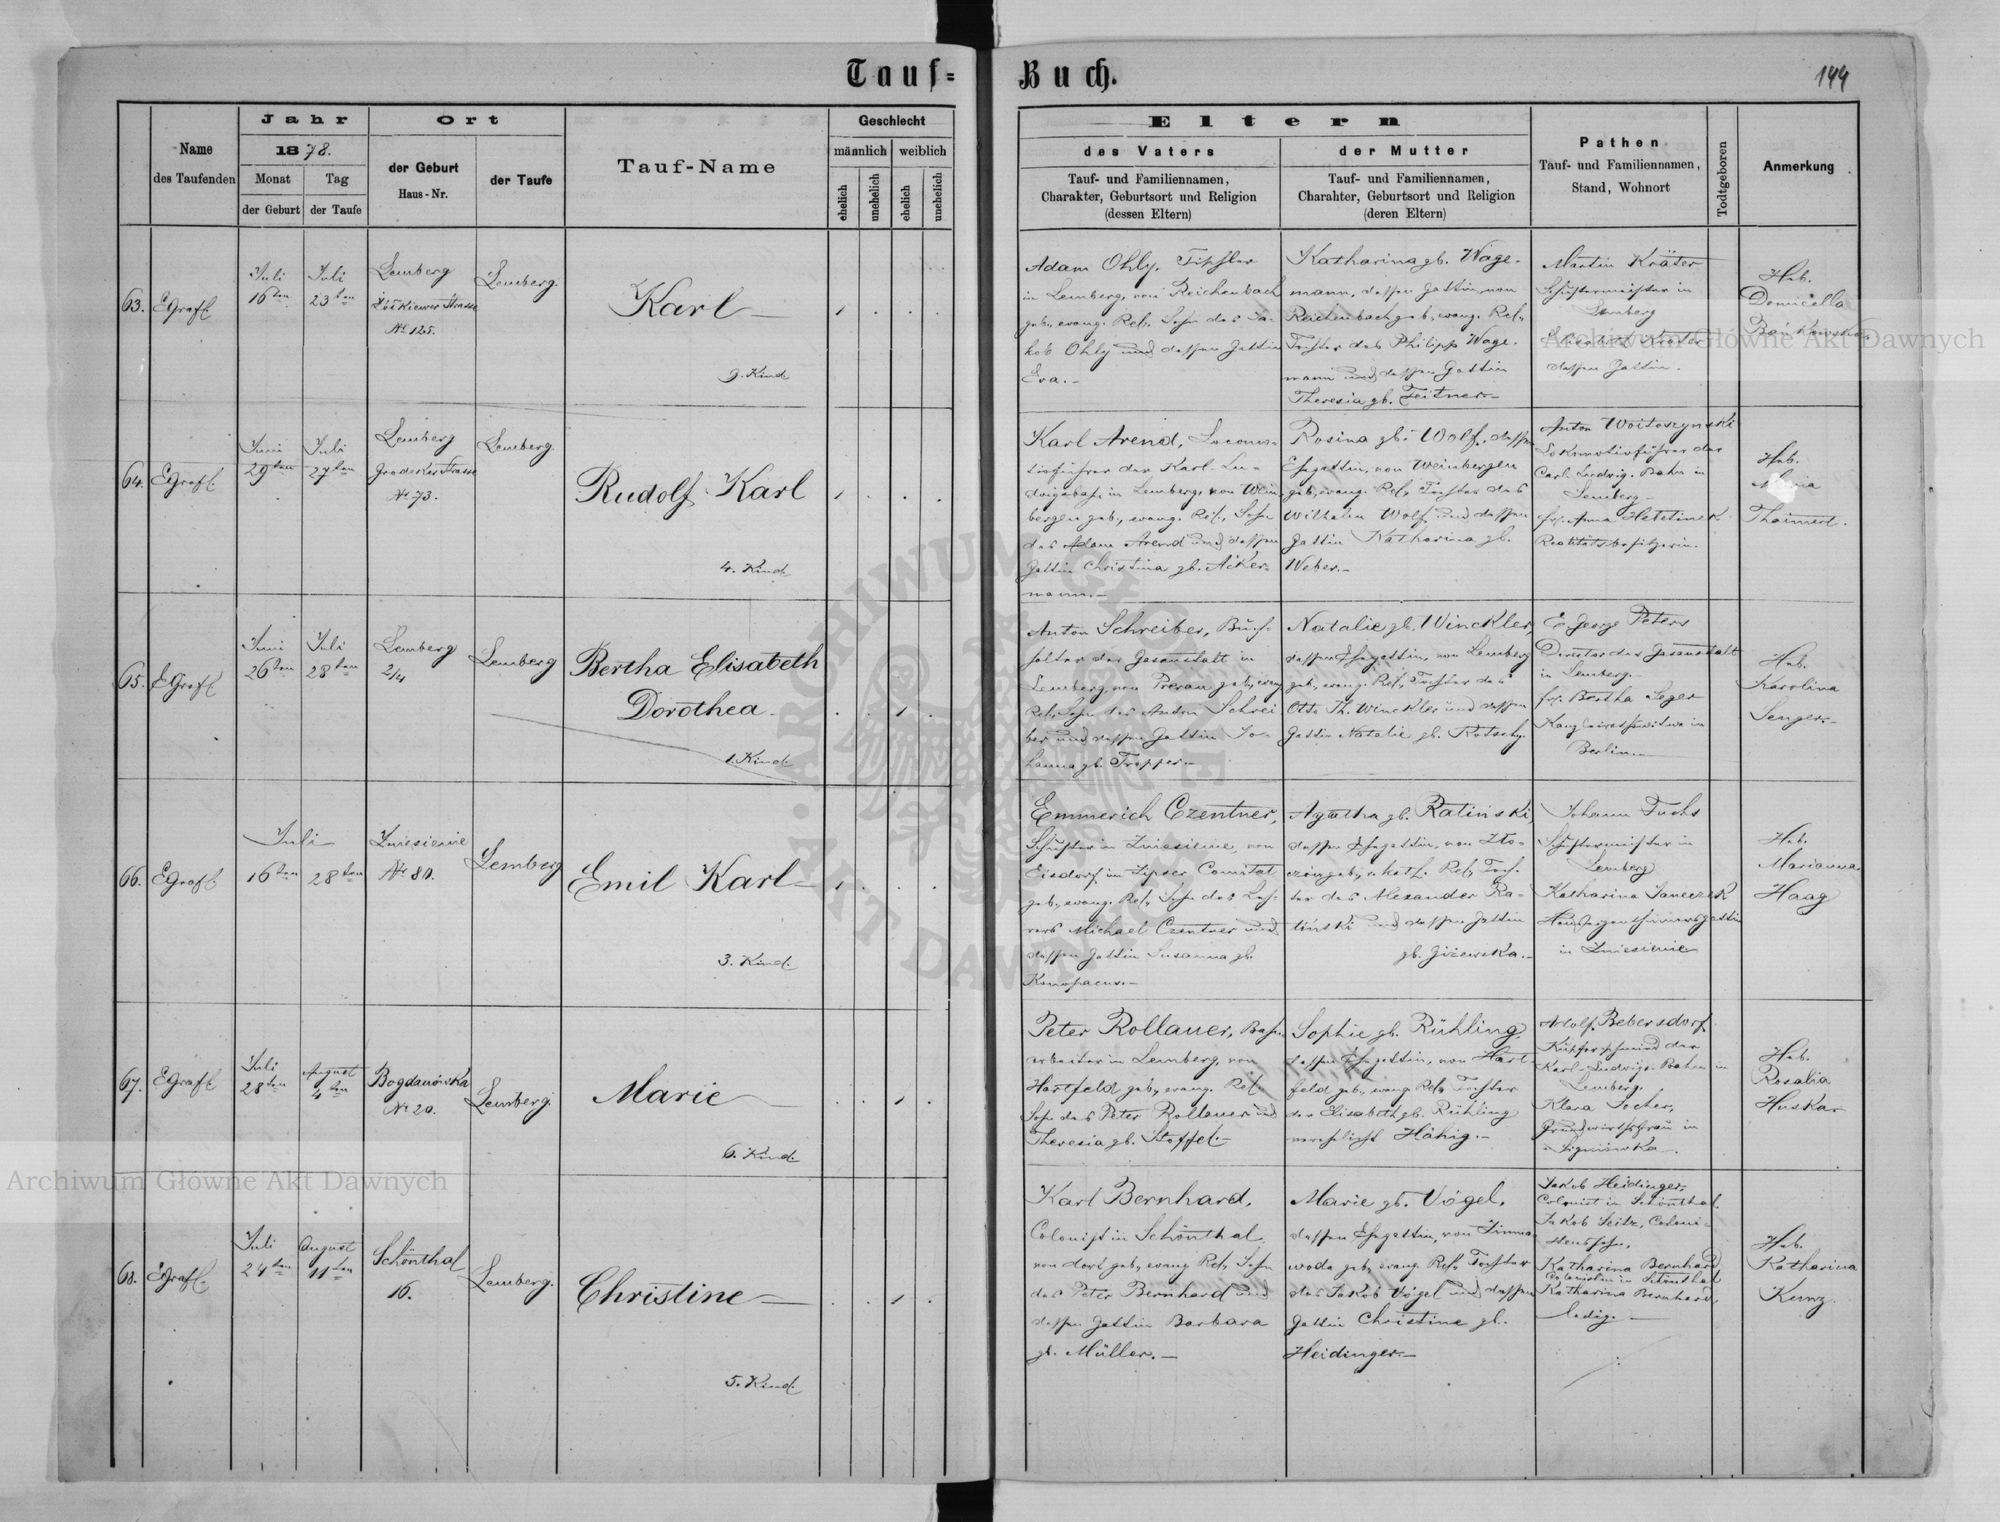 Tauf-Buch.
144
Name
des Taufenden
Jahr
1878.
Monat
der Geburt
Tag
der Taufe
Ort
der Geburt
Haus-Nr.
der Taufe
Tauf-Name
Geschlecht
männlich
weiblich
ehelich
unehelich
ehelich
unehelich
Eltern
des Vaters
Tauf- und Familiennamen,
Charakter, Geburtsort und Religion
(dessen Eltern)
der Mutter
Tauf- und Familiennamen,
Charahter, Geburtsort und Religion
(deren Eltern)
Pathen
Tauf- und Familiennamen,
Stand, Wohnort
Todtgeboren
Anmerkung
63.
EGrafl
Juli
16ten
Juli
23ten
Lemberg
Żółkiewer Strasse
Nr 125.
Lemberg.
Karl
9. Kind
Adam Ohly, Tischler
in Lemberg, von Reichenbach
geb., evang. Ref., Sohn des Ja-
kob Ohly und dessen Gattin
Eva.
Katharina gb. Wage-
mann, dessen Gattin, von
Reichenbach geb., evang. Ref.,
Tochter des Philipp Wage-
mann und dessen Gattin
Theresia gb. Zeitner
Martin Kräter
Schustermeister in
Lemberg
Elisabeth Kräter
dessen Gattin.
Heb.
Domicella
Bońkowska
64.
EGrafl
Juni
29ten
Juli
27ten
Lemberg
Grodeker Strasse
Nr 73.
Lemberg.
Rudolf Karl
4. Kind
Karl Arend, Locomo-
tivführer der Karl-Lu-
dwigsbahn in Lemberg, von Wein-
bergen geb., evang. Ref., Sohn
des Adam Arend und dessen
Gattin Christina gb. Acker-
mann.
Rosina gb. Wolf, dessen
Ehegattin, von Weinbergen
geb., evang. Ref., Tochter des
Wilhelm Wolf und dessen
Gattin Katharina gb.
Weber.
Anton Woitoszynski
Lokomotivführer der
Carl Ludwig-Bahn in
Lemberg
Fr. Anna
Realitätsbesitzerin.
Heb.
Maria
Thaimert.
65.
EGrafl
Juni
26ten
Juli
28ten
Lemberg
2/4
Lemberg
Bertha Elisabeth
Dorothea
1. Kind.
Anton Schreiber, Buch-
halter der Gasanstalt in
Lemberg, von Prerau geb., evang.
Ref., Sohn des Anton Schrei-
ber und dessen Gattin Jo-
hanna gb. Tropper.
Natalie gb. Winckler,
dessen Ehegattin, von Lemberg
geb., evang. Ref., Tochter des
Otto Th. Winckler und dessen
Gattin Natalie gb. Rotschy.
George Peters
Director der Gasanstalt
in Lemberg.
Fr. Bertha Seger
Kanzleirathswitwe in
Berlin.
Heb.
Karolina
Senger.
66.
EGrafl
Juli
16ten
28ten
Zniesienie
Nr 80.
Lemberg
Emil Karl
3. Kind.
Emmerich Czentner,
Schuster in Zniesienie, von
Eisdorf im Zipser Comitat
geb., evang. Ref., Sohn des Leh-
rers Michael Czentner und
dessen Gattin Susanna gb.
Agatha gb. Ratinski,
dessen Ehegattin, von Zło-
czów geb., r. kath. Rel., Toch-
ter des Alexander Ra-
tinski und dessen Gattin
gb. Giżewska.
Johann Fuchs
Schustermeister in
Lemberg
Katharina Janeczek
Hauseigenthümersgattin
in Zniesienie
Heb.
Marianna
Haag
67.
EGrafl
Juli
28ten
August
4ten
Bogdanówka
Nr 20.
Lemberg.
Marie
6. Kind.
Peter Rollauer, Bahn-
arbeiter in Lemberg, von
Hartfeld geb., evang. Ref.,
Sohn des Peter Rollauer und
Theresia gb. Stoffel.
Sophie gb. Rühling,
dessen Ehegattin, von Hart-
feld geb., evang. Ref., Tochter
der Elisabeth gb. Rühling
verehlicht Hähig.
Adolf Bebersdorf
Kupferschmied der
Karl-Ludwigs-Bahn in
Lemberg.
Klara Jocher,
Grundwirthsfrau in
Signiówka.
Heb.
Rosalia
Huskar
68.
EGrafl.
Juli
24ten
August
11ten
Schönthal
16.
Lemberg.
Christine
5. Kind.
Karl Bernhard,
Colonist in Schönthal,
von dort geb., evang. Ref., Sohn
des Peter Bernhard und
dessen Gattin Barbara
gb. Müller.
Marie gb. Vogel,
dessen Ehegattin, von Zimna-
woda geb., evang. Ref., Tochter
des Jakob Vogel und dessen
Gattin Christine gb.
Heidinger.
Jakob Heidinger,
Colonist in Schönthal.
Jakob Seitz, Coloni-
stensohn,
Katharina Bernhard
Colonistin in Schönthal
Katharina Bernhard,
ledig.
Heb.
Katharina
Kunz
Archiwum Główne Akt Dawnych
Archiwum Główne Akt Dawnych
ARCHIWUM GŁÓWNE AKT DAWNYCH